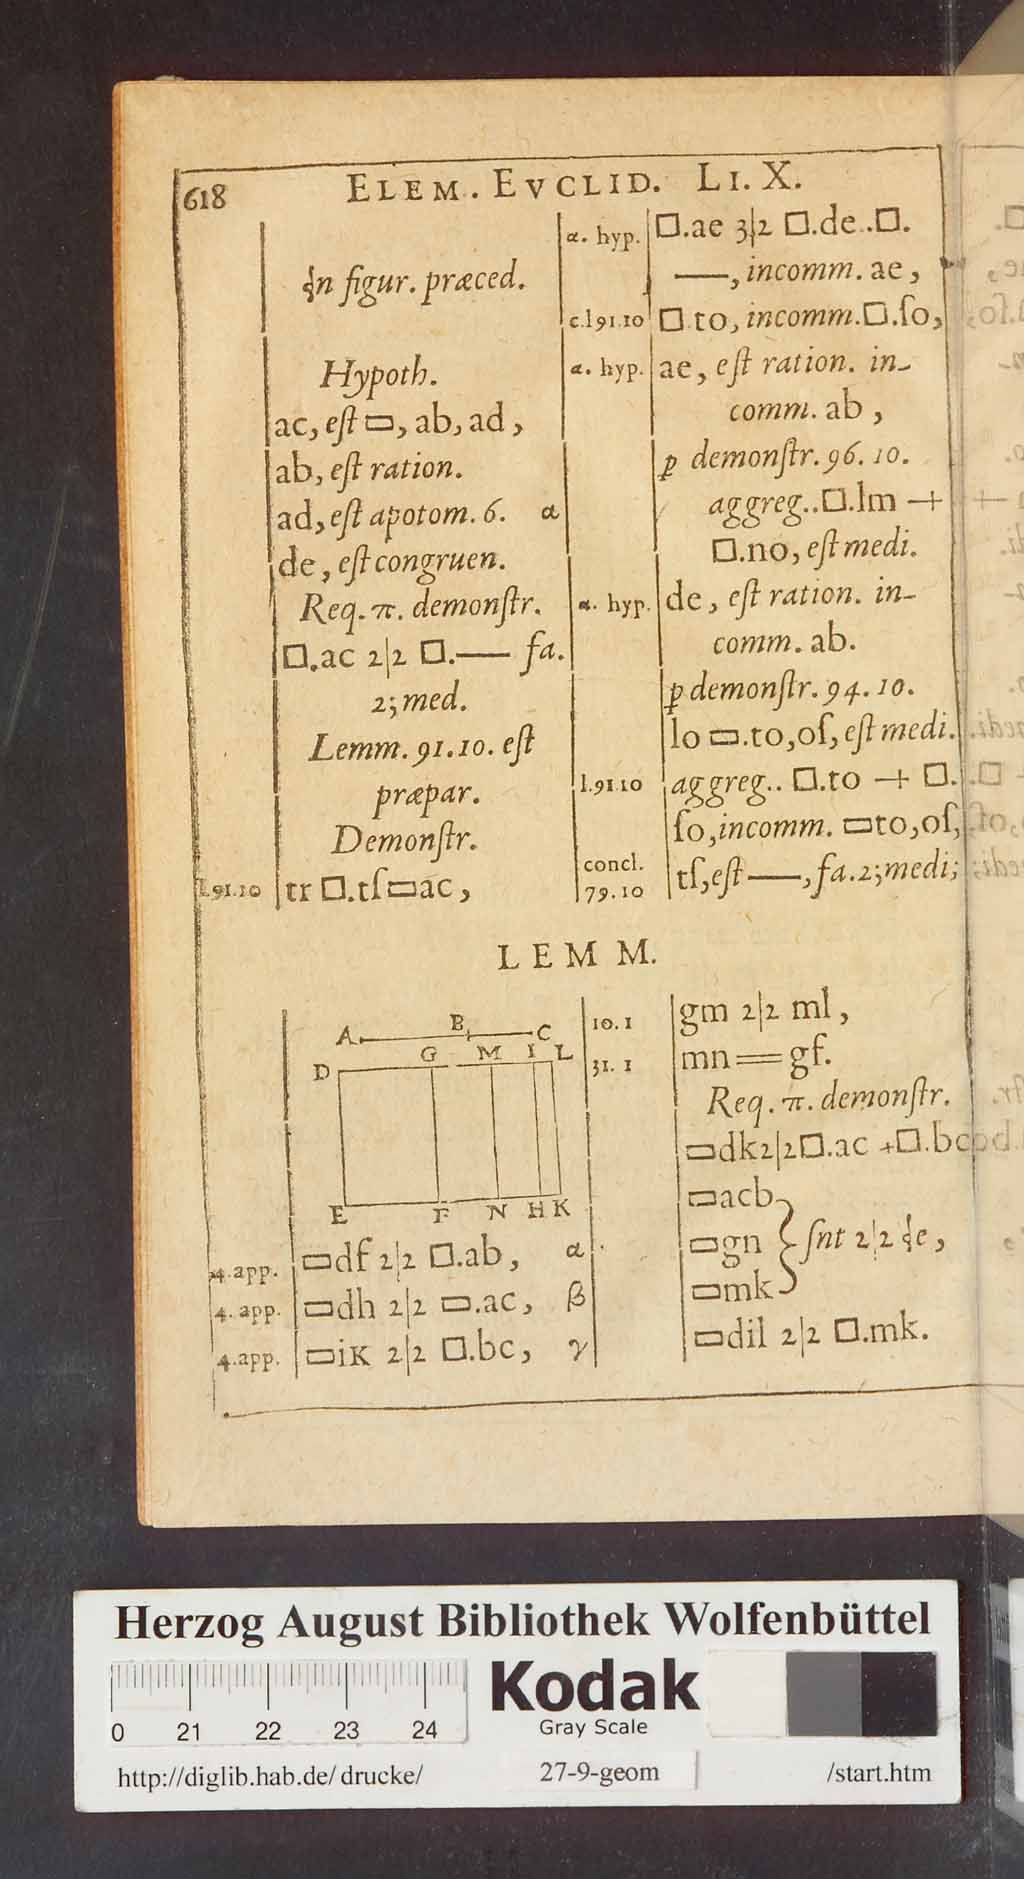 618
ELEM. EVCLID. LI. X.
In figur. præced.
Hypoth.
ac, eſt ▭, ab, ad,
ab, eſt ration.
ad, eſt apotom. 6. α
de, eſt congruen.
Req. π. demonſtr.
□.ac 2|2 □.— fa.
2; med.
Lemm. 91.10. eſt
præpar.
Demonſtr.
l.91.10 tr □.tſ ▭ ac,
α. hyp. □.ae 3|2 □.de..□.
—, incomm. ae,
c.l 91.10 □.to, incomm. □.ſo,
α. hyp. ae, eſt ration. in-
comm. ab,
p demonſtr. 96. 10.
aggreg..□.lm +
□.no, eſt medi.
α. hyp. de, eſt ration. in-
comm. ab.
p demonſtr. 94. 10.
lo ▭.to,oſ, eſt medi.
l.91.10 aggreg.. □.to + □.
ſo, incomm. ▭to,oſ,
concl.
79.10 tſ, eſt —, fa. 2; medi;
LEMM.
A B C
D G M I L
E F N H K
4. app. ▭df 2|2 □.ab, α
4. app. ▭dh 2|2 ▭.ac, β
4. app. ▭iK 2|2 □.bc, γ
10. 1 gm 2|2 ml,
31. 1 mn == gf.
Req. π. demonſtr.
▭dk 2|2 □.ac + □.bc
▭acb
▭gn } ſnt 2|2 Ie,
▭mk
▭dil 2|2 □.mk.
Herzog August Bibliothek Wolfenbüttel
Kodak
Gray Scale
0 21 22 23 24
http://diglib.hab.de/drucke/ 27-9-geom /start.htm